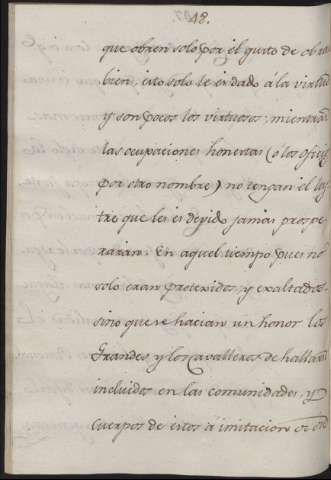 48.
que obren solo por el gusto de obrar
bien: esto solo le es dado á la virtud
y son pocos los virtuosos; mientras
las ocupaciones honestas (o los oficios
por otro nombre) no tengan el lus
tre que les es devido jamas prospe
raran. En aquel tiempo pues no
solo eran protexidos, y exaltados
sino que se hacian un honor los
Grandes y los cavalleros de hallarse
incluidos en las comunidades y
cuerpos de estos á imitacion